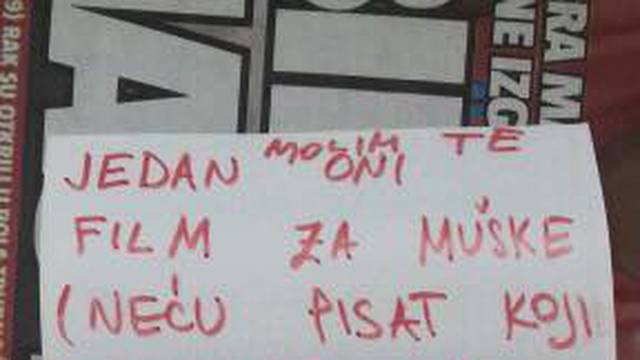 RA M
NE IZG
9) RAK SU OTKRILI U
MOLIM TE
JEDAN ONI
FILM ZA MUŠKE
(NEĆU PISAT KOJI